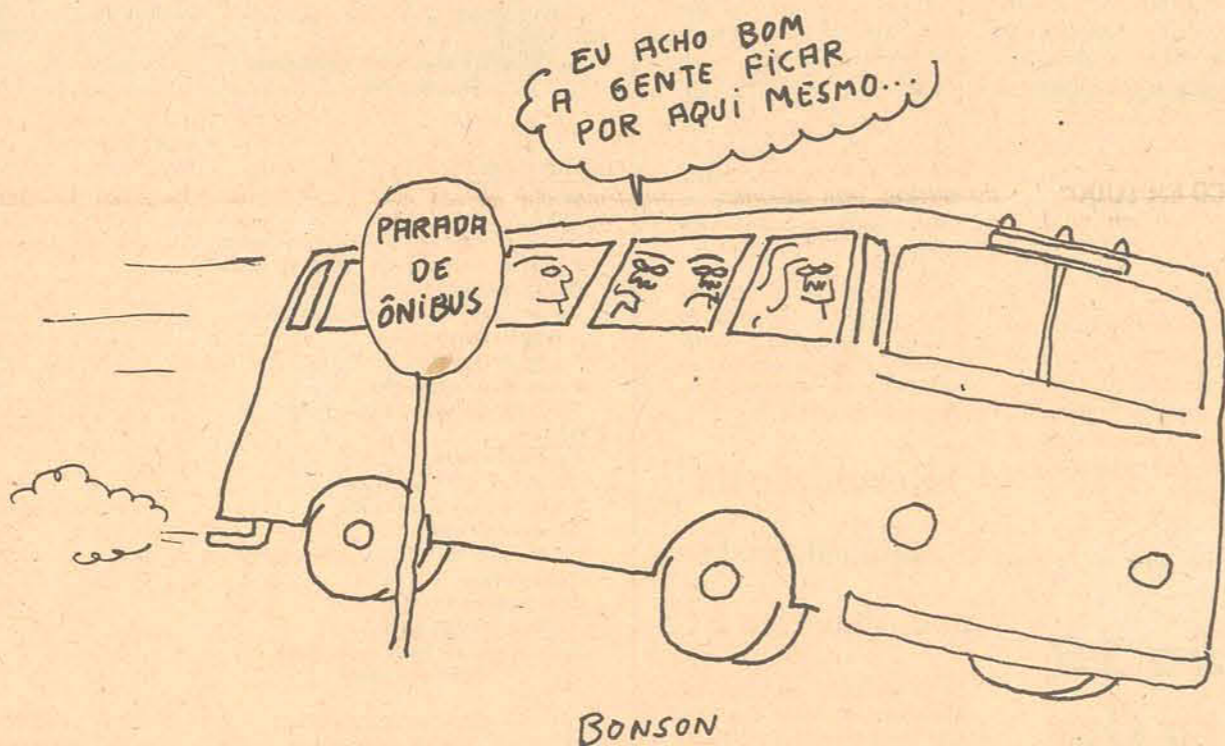 EU ACHO BOM
A GENTE FICAR
POR AQUI MESMO...
PARADA
DE
ÔNIBUS
BONSON